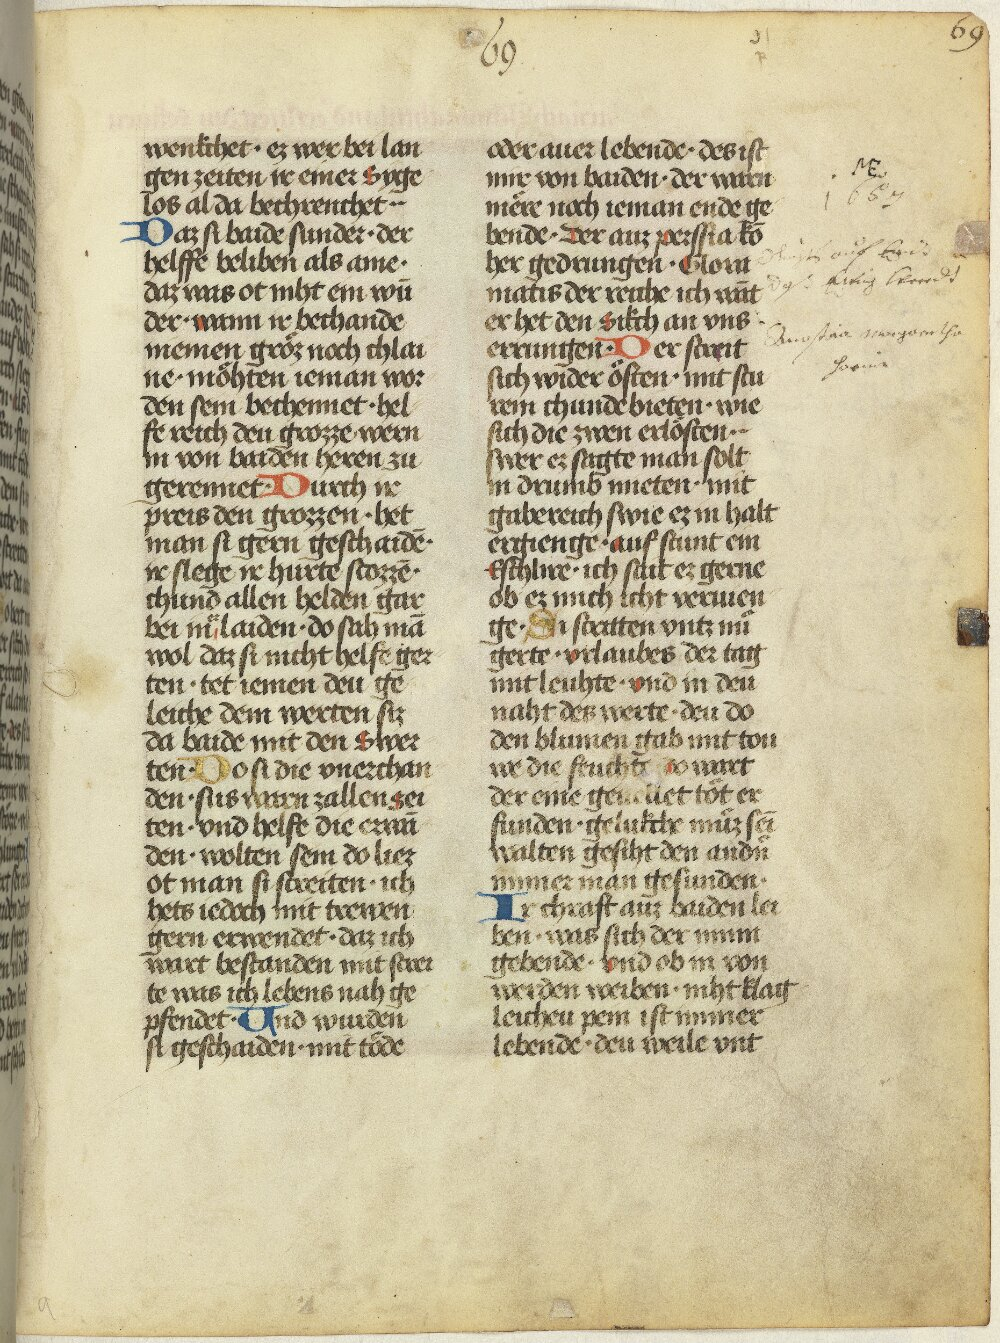 69
69
wenkchet · ez wer bei lan
gen zeiten ir einer Syge
los al da bechrenchet ··
Daz si baide sunder · der
helffe beliben als ame ·
daz was ot niht ein wū
der · wann ir bechande
meinen gröz noch chlai
ne · möhten ieman wor
den sein bechennet · hel
fe reich deu grozze wern
in von baiden heren zu
gerennet · Durch ir
preis den grozzen · het
man si gern geschaidē ·
ir slege ir hurte stozzē ·
chund allen helden gar
bei mir laiden · do sah mā
wol daz si nicht helfe ger
ten · tet iemen deu ge
leiche dem werten siz
da baide mit den Swer
ten · Do si die vnerchan
den · sus warn zallen sei
ten · vnd helfe die erwā
den · wolten sein do liez
ot man si streiten · ich
hets iedoch mit trewen
gern erwendet · daz ich
wart bestanden mit strei
te was ich lebens nah ge
pfendet · Und wurden
si geschaiden · mit tode
oder auer lebende · des ist
mir von baiden · der warn
mere noch ieman ende ge
bende · Der auz perssia kō
her gedrungen · Glora
matis der reiche ich wāt
er het den sikch an vns
errungen · Der streit
sich wider osten · mit stu
rem chunde bieten · wie
sich die zwen erlosten ··
swer ez sagte man solt
in drumb mieten · mit
gabe reich swie ez in halt
ergienge · auf stunt ein
Eschlire · ich sait ez gerne
ob ez mich icht veruien
ge · Si stritten vntz nū
gerte · vrlaubes der tag
mit leuhte · vnd in den
naht des werte · deu do
den blumen gab mit tou
we die feuchte · do wart
der eine geuellet töt er
funden · gelukche müz sein
walten gesiht den andn
nimer man gesunden ·
Ir chraft auz baiden lei
ben · was sich der minn
gebende · vnd ob in von
werden weiben · niht klag
leicheu pein ist immer
lebende · deu weile vnt
1667